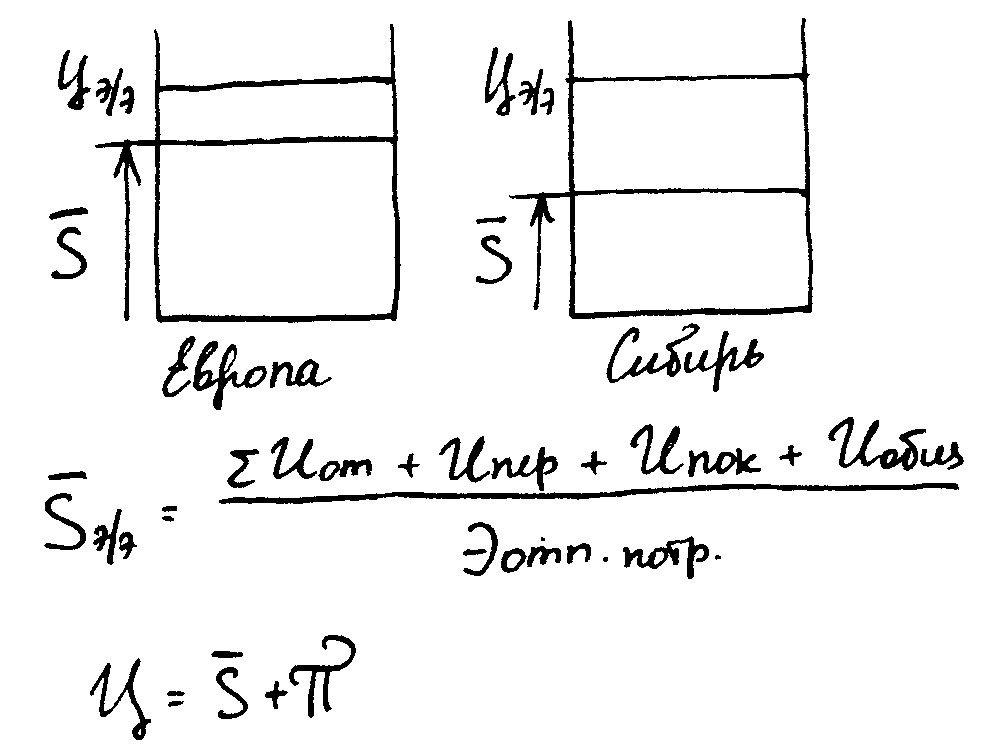 Цэ/э Цэ/э
S̄ S̄
Европа Сибирь
S̄э/э = ΣИот + Ипер + Ипок + Иобщ / Эотп. потр.
Ц = S̄ + П